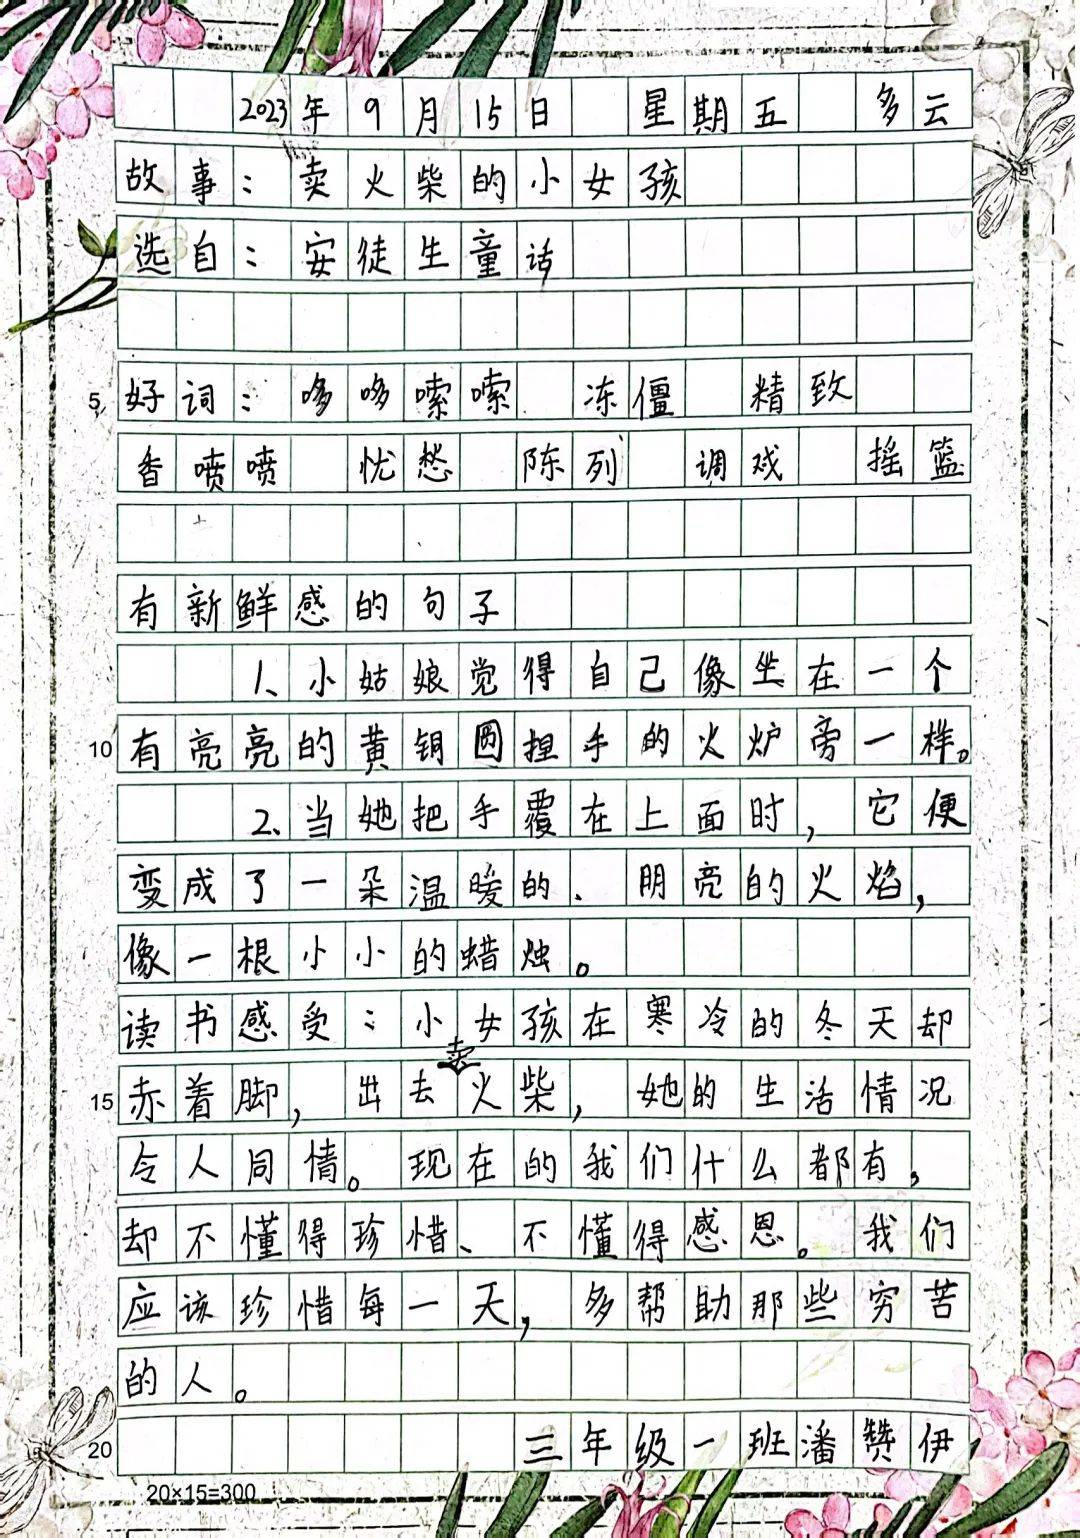 2023年9月15日 星期五 多云
故事：卖火柴的小女孩
选自：安徒生童话
5 好词：哆哆嗦嗦 冻僵 精致
香喷喷 忧愁 陈列 调戏 摇篮
有新鲜感的句子
1、小姑娘觉得自己像坐在一个
10 有亮亮的黄铜圆捏手的火炉旁一样。
2、当她把手覆在上面时，它便
变成了一朵温暖的、明亮的火焰，
像一根小小的蜡烛。
读书感受：小女孩在寒冷的冬天却
15 赤着脚，出去卖火柴，她的生活情况
令人同情。现在的我们什么都有，
却不懂得珍惜、不懂得感恩。我们
应该珍惜每一天，多帮助那些穷苦
的人。
20 三年级一班潘赞伊
20×15=300